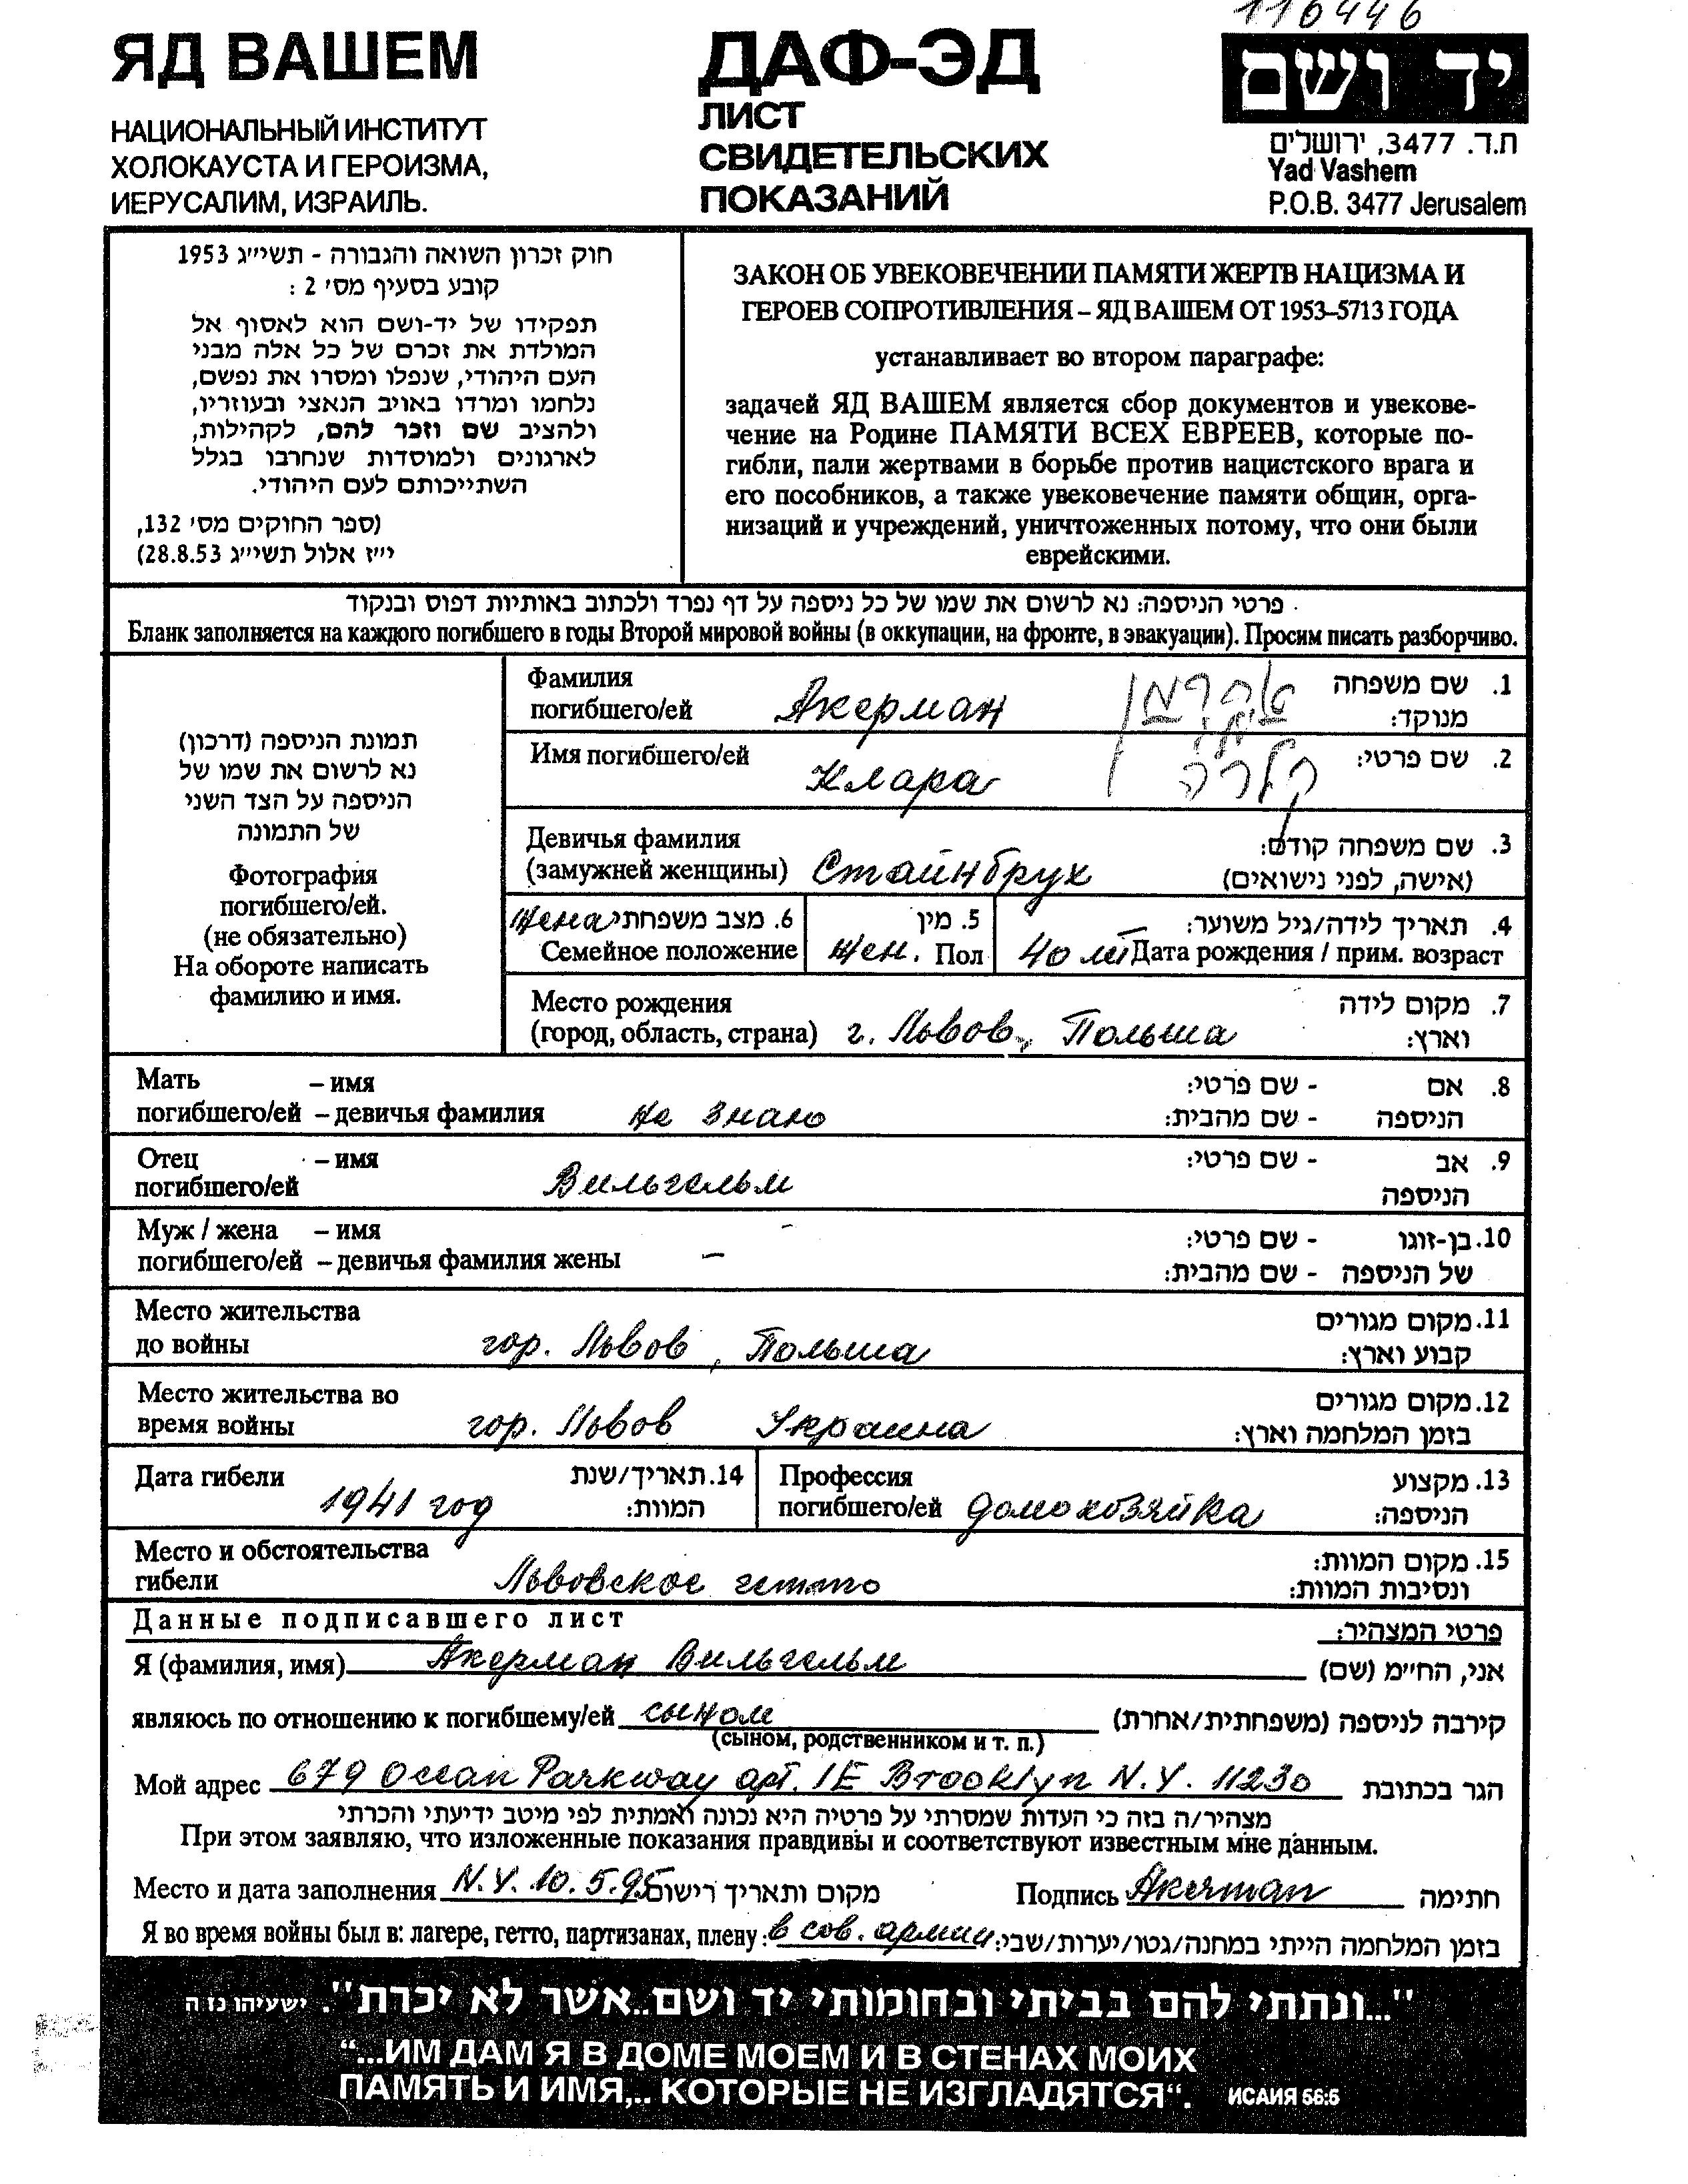 116446
ЯД ВАШЕМ
НАЦИОНАЛЬНЫЙ ИНСТИТУТ
ХОЛОКАУСТА И ГЕРОИЗМА,
ИЕРУСАЛИМ, ИЗРАИЛЬ.
ДАФ-ЭД
ЛИСТ
СВИДЕТЕЛЬСКИХ
ПОКАЗАНИЙ
יד ושם
ת.ד. 3477, ירושלים
Yad Vashem
P.O.B. 3477 Jerusalem
חוק זכרון השואה והגבורה - תשי״ג 1953
קובע בסעיף מס׳ 2 :
תפקידו של יד-ושם הוא לאסוף אל
המולדת את זכרם של כל אלה מבני
העם היהודי, שנפלו ומסרו את נפשם,
נלחמו ומרדו באויב הנאצי ובעוזריו,
ולהציב שם וזכר להם, לקהילות,
לארגונים ולמוסדות שנחרבו בגלל
השתייכותם לעם היהודי.
(ספר החוקים מס׳ 132,
י״ז אלול תשי״ג 28.8.53)
ЗАКОН ОБ УВЕКОВЕЧЕНИИ ПАМЯТИ ЖЕРТВ НАЦИЗМА И
ГЕРОЕВ СОПРОТИВЛЕНИЯ – ЯД ВАШЕМ ОТ 1953–5713 ГОДА
устанавливает во втором параграфе:
задачей ЯД ВАШЕМ является сбор документов и увекове-
чение на Родине ПАМЯТИ ВСЕХ ЕВРЕЕВ, которые по-
гибли, пали жертвами в борьбе против нацистского врага и
его пособников, а также увековечение памяти общин, орга-
низаций и учреждений, уничтоженных потому, что они были
еврейскими.
פרטי הניספה: נא לרשום את שמו של כל ניספה על דף נפרד ולכתוב באותיות דפוס ובנקוד
Бланк заполняется на каждого погибшего в годы Второй мировой войны (в оккупации, на фронте, в эвакуации). Просим писать разборчиво.
תמונת הניספה (דרכון)
נא לרשום את שמו של
הניספה על הצד השני
של התמונה
Фотография
погибшего/ей.
(не обязательно)
На обороте написать
фамилию и имя.
Фамилия
погибшего/ей Акерман אקרמן 1. שם משפחה
מנוקד:
Имя погибшего/ей Клара קלרה 2. שם פרטי:
Девичья фамилия 3. שם משפחה קודם:
(замужней женщины) Стайнбрук (אישה, לפני נישואים)
жена 6. מצב משפחתי
Семейное положение
5. מין
жен. Пол
4. תאריך לידה/גיל משוער:
40 лет Дата рождения / прим. возраст
Место рождения 7. מקום לידה
(город, область, страна) г. Львов, Польша וארץ:
Мать – имя - שם פרטי: 8. אם
погибшего/ей – девичья фамилия не знаю - שם מהבית: הניספה
Отец – имя - שם פרטי: 9. אב
погибшего/ей Вильгельм הניספה
Муж / жена – имя - - שם פרטי: 10. בן-זוגו
погибшего/ей – девичья фамилия жены – - שם מהבית: של הניספה
Место жительства 11. מקום מגורים
до войны гор. Львов, Польша קבוע וארץ:
Место жительства во 12. מקום מגורים
время войны гор. Львов Украина בזמן המלחמה וארץ:
Дата гибели 14. תאריך/שנת
1941 год המוות:
Профессия 13. מקצוע
погибшего/ей домохозяйка הניספה:
Место и обстоятельства 15. מקום המוות:
гибели Львовское гетто ונסיבות המוות:
Данные подписавшего лист פרטי המצהיר:
Я (фамилия, имя) Акерман Вильгельм אני, הח״מ (שם)
являюсь по отношению к погибшему/ей сыном קירבה לניספה (משפחתית/אחרת)
(сыном, родственником и т. п.)
Мой адрес 679 Ocean Parkway apt. 1E Brooklyn N.Y. 11230 הגר בכתובת
מצהיר/ה בזה כי העדות שמסרתי על פרטיה היא נכונה ואמתית לפי מיטב ידיעתי והכרתי
При этом заявляю, что изложенные показания правдивы и соответствуют известным мне данным.
Место и дата заполнения N.Y. 10.5.95 מקום ותאריך רישום Подпись Akerman חתימה
Я во время войны был в: лагере, гетто, партизанах, плену: в сов. армии בזמן המלחמה הייתי במחנה/גטו/יערות/שבי:
"...ונתתי להם בביתי ובחומותי יד ושם..אשר לא יכרת". ישעיהו נו ה
“...ИМ ДАМ Я В ДОМЕ МОЕМ И В СТЕНАХ МОИХ
ПАМЯТЬ И ИМЯ,.. КОТОРЫЕ НЕ ИЗГЛАДЯТСЯ“. ИСАИЯ 56:5